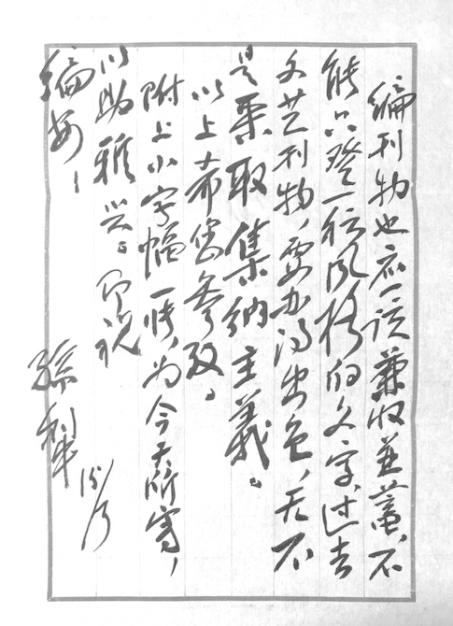 编刊物也应该兼收并蓄，不
能只登一种风格的文字，过去
文艺刊物，要办得出色，无不
是采取集纳主义。
以上希留参改。
附上小字幅一帧，为今天所写，
以助雅兴。即祝
编安！
孙犁